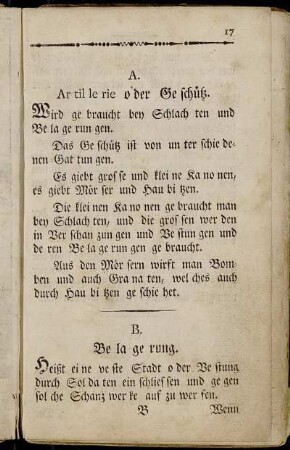 17
A.
Ar til le rie o der Ge schütz.
Wird ge braucht bey Schlach ten und
Be la ge run gen.
Das Ge schütz ist von un ter schie de-
nen Gat tun gen.
Es giebt gros se und klei ne Ka no nen,
es giebt Mör ser und Hau bi tzen.
Die klei nen Ka no nen ge braucht man
bey Schlach ten, und die gros sen wer den
in Ver schan zun gen und Ve stun gen und
de ren Be la ge run gen ge braucht.
Aus den Mör sern wirft man Bom-
ben und auch Gra na ten, wel ches auch
durch Hau bi tzen ge schie het.
B.
Be la ge rung.
Heißt ei ne ve ste Stadt o der Ve stung
durch Sol da ten ein schlies sen und ge gen
sol che Schanz wer ke auf zu wer fen.
B Wenn